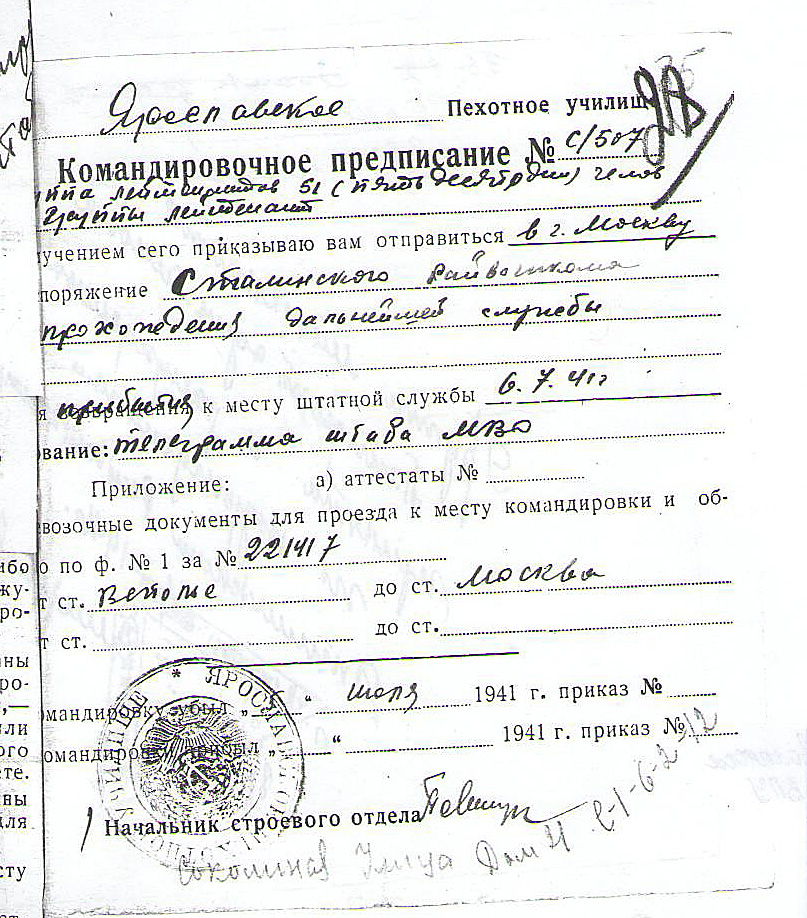 Ярославское Пехотное училищ
Командировочное предписание № с/507
ппа лейтенантов 51 (пятьдесят один) челов
группы лейтенант
учением сего приказываю вам отправиться в г. Москву
поряжение Сталинского Райвоенкома
прохождения дальнейшей службы
я возвращения прибытия к месту штатной службы 6.7.41г
ование: телеграмма штаба МВО
Приложение: а) аттестаты №
возочные документы для проезда к месту командировки и об-
о по ф. № 1 за № 221417
т ст. до ст. Москва
т ст. до ст.
омандировку убыл „ “ июля 1941 г. приказ №
омандировки прибыл „ “ 1941 г. приказ №
* ЯРОСЛАВСКОЕ УЧИЛИЩЕ
Начальник строевого отдела
улица Дом
ибо
жу-
ро-
ны
ро-
,—
или
ого
ете.
ны
для
сту